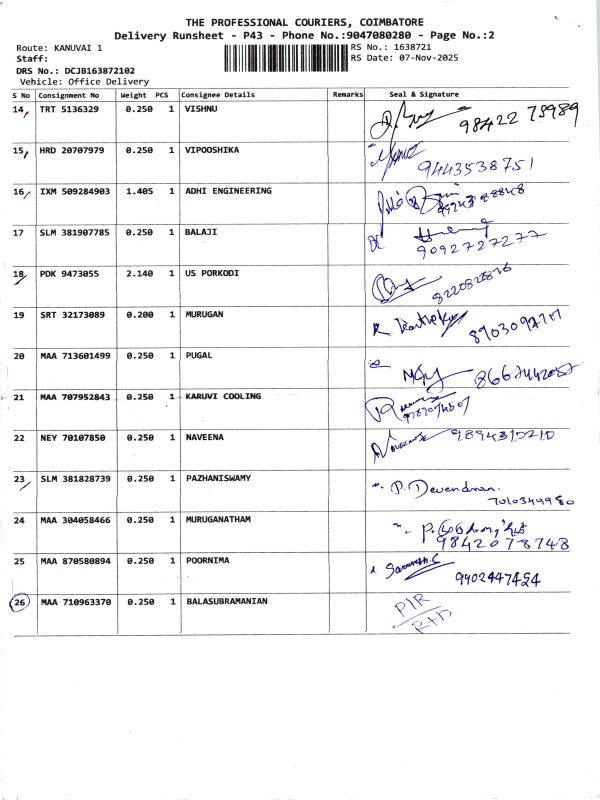 THE PROFESSIONAL COURIERS, COIMBATORE
Delivery Runsheet - P43 - Phone No.:9047080280 - Page No.:2
Route: KANUVAI 1 RS No.: 1638721
Staff: RS Date: 07-Nov-2025
DRS No.: DCJB163872102
Vehicle: Office Delivery
S No Consignment No Weight PCS Consignee Details Remarks Seal & Signature
14 TRT 5136329 0.250 1 VISHNU 98422 75989
15 HRD 20707979 0.250 1 VIPOOSHIKA 9443538751
16 IXM 509284903 1.405 1 ADHI ENGINEERING
17 SLM 381907785 0.250 1 BALAJI 9092727277
18 PDK 9473055 2.140 1 US PORKODI
19 SRT 32173089 0.200 1 MURUGAN
20 MAA 713601499 0.250 1 PUGAL
21 MAA 707952843 0.250 1 KARUVI COOLING
22 NEY 70107850 0.250 1 NAVEENA
23 SLM 381828739 0.250 1 PAZHANISWAMY P. Devendran.
7010349980
24 MAA 304058466 0.250 1 MURUGANATHAM
9842078748
25 MAA 870580894 0.250 1 POORNIMA 9402447454
26 MAA 710963370 0.250 1 BALASUBRAMANIAN